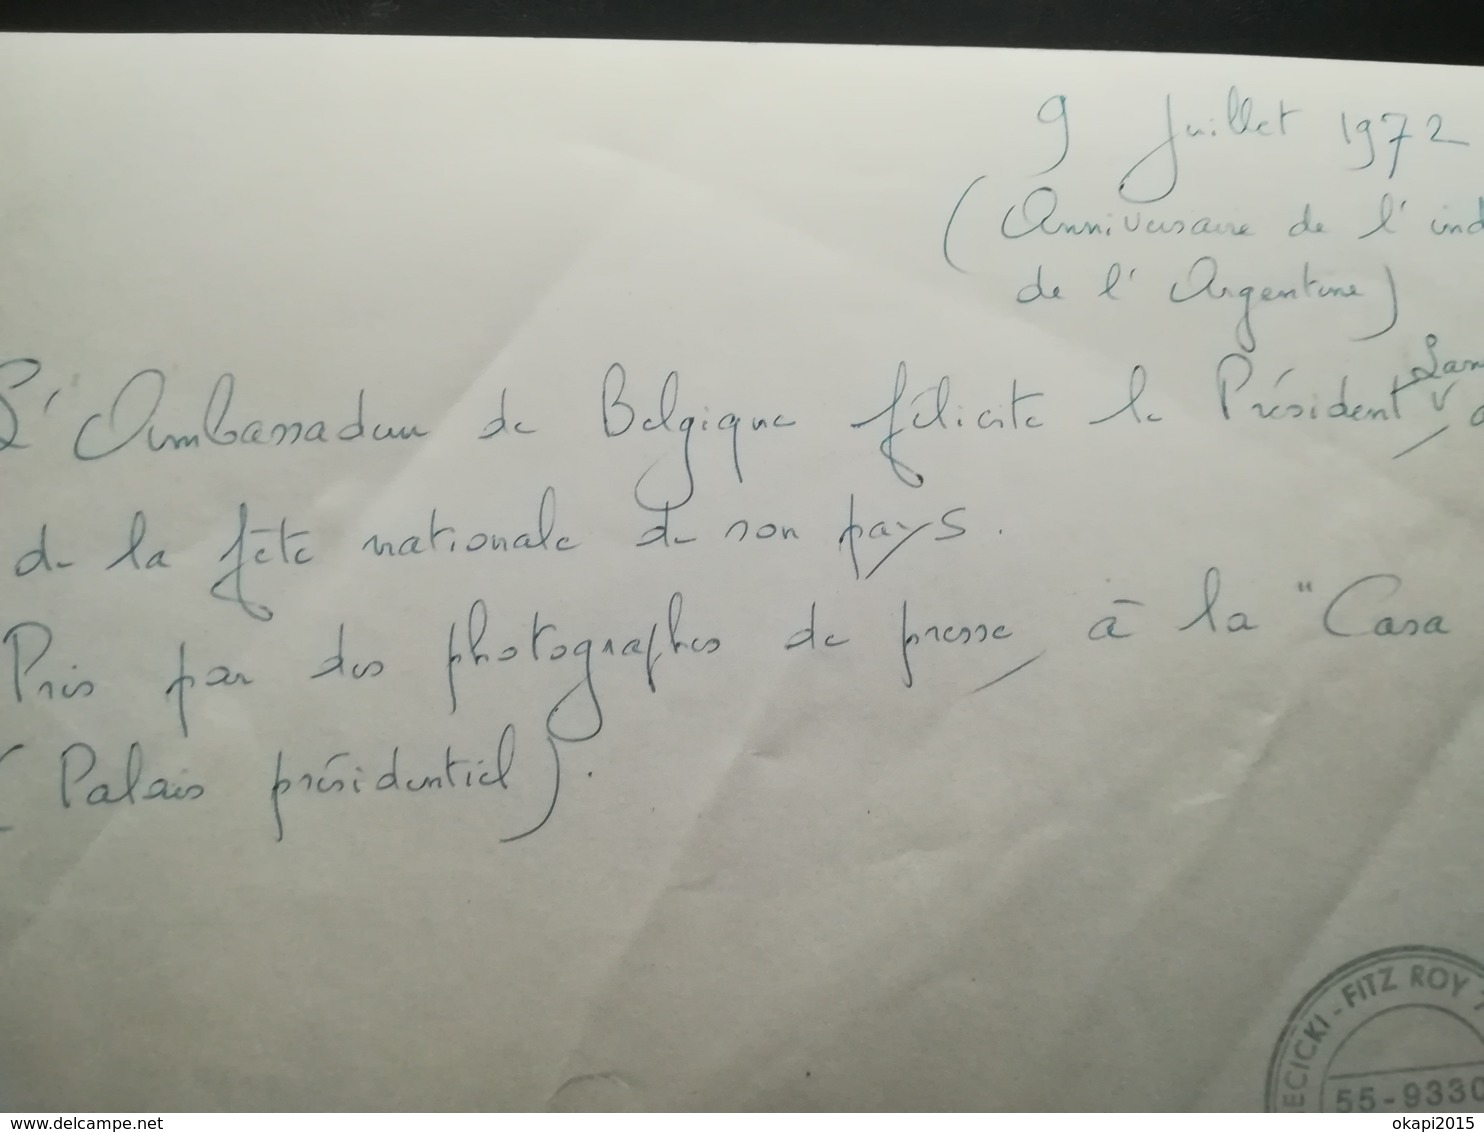 9 Juillet 1972
(Anniversaire de l' ind
de l' Argentine)
Lan
L'Ambassadeur de Belgique félicite le Président
de la fête nationale de son pays.
Pris par des photographes de presse, à la "Casa
(Palais présidentiel).
ECICKI - FITZ ROY
55-9330
www.delcampe.net
okapi2015